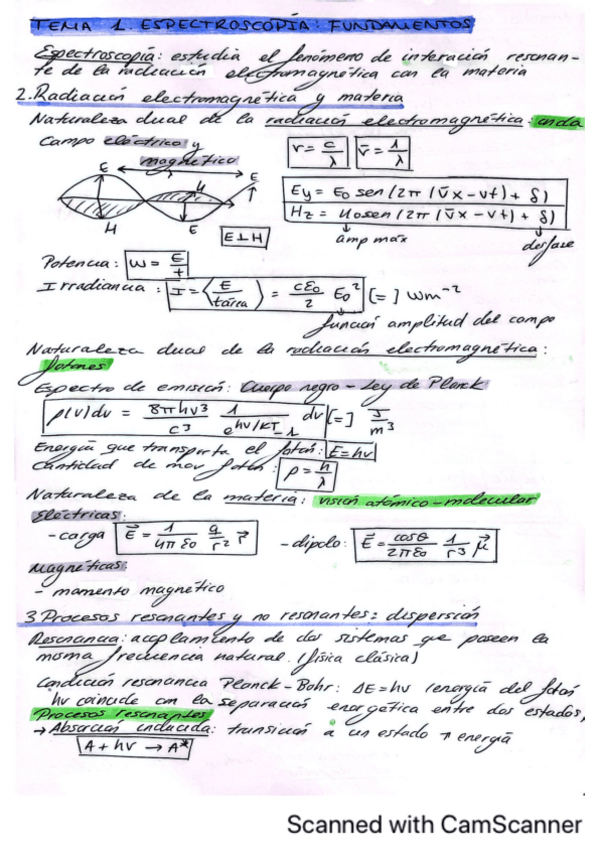 TEMA 1. ESPECTROSCOPÍA: FUNDAMENTOS
Espectroscopía: estudia el fenómeno de interación resonan-
te de la radiación electromagnética con la materia
2. Radiación electromagnética y materia
Naturaleza dual de la radiación electromagnética: onda
Campo eléctrico y
magnético
ν = c/λ   ν̄ = 1/λ
E H E H E
E ⊥ H
Ey = E0 sen (2π (ν̄x - νt) + δ)
Hz = H0 sen (2π (ν̄x - νt) + δ)
amp máx   desfase
Potencia: W = E/t
Irradiancia: I = ⟨E/t·área⟩ = cε0/2 E0² [=] Wm⁻²
función amplitud del campo
Naturaleza dual de la radiación electromagnética:
fotones
Espectro de emisión: Cuerpo negro - Ley de Planck
ρ(ν)dν = 8πhν³/c³ 1/(e^(hν/kT) - 1) dν [=] J/m³
Energía que transporta el fotón: E = hν
Cantidad de mov fotón: p = h/λ
Naturaleza de la materia: visión atómico-molecular
Eléctricas:
- carga E⃗ = 1/4πε0 q/r² r⃗   - dipolo: E⃗ = cosθ/2πε0 1/r³ μ⃗
Magnéticas:
- momento magnético
3 Procesos resonantes y no resonantes: dispersión
Resonancia: acoplamiento de dos sistemas que poseen la
misma frecuencia natural. (física clásica)
Condición resonancia Planck-Bohr: ΔE = hν (energía del fotón
hν coincide con la separación energética entre dos estados)
Procesos resonantes
→ Absorción inducida: transición a un estado ↑ energía
A + hν → A*
Scanned with CamScanner